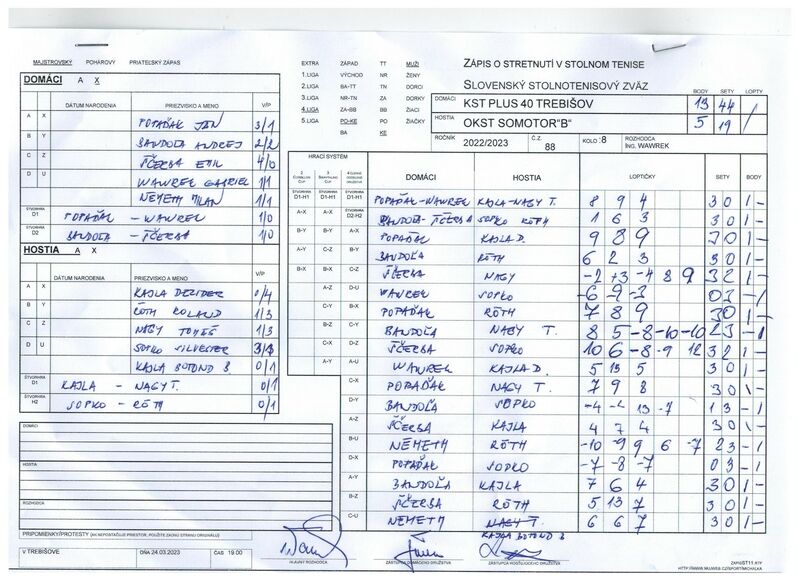 MAJSTROVSKÝ POHÁROVÝ PRIATEĽSKÝ ZÁPAS
DOMÁCI A X
DÁTUM NARODENIA PRIEZVISKO A MENO V/P
A X POPAĎÁK JÁN 3/1
B Y BANDOĽA ANDREJ 2/2
C Z ŠČERBA EMIL 4/0
D U WAWREK GABRIEL 1/1
NÉMETH MILAN 1/1
ŠTVORHRA D1 POPAĎÁK - WAWREK 1/0
ŠTVORHRA D2 BANDOĽA - ŠČERBA 1/0
HOSTIA A X
DÁTUM NARODENIA PRIEZVISKO A MENO V/P
A X KAJLA DEZIDER 0/4
B Y RÓTH ROLAND 1/3
C Z NAGY TOMÁŠ 1/3
D U SOPKO SILVESTER 3/3
KAJLA BOTOND B. 0/1
ŠTVORHRA D1 KAJLA - NAGY T. 0/1
ŠTVORHRA H2 SOPKO - RÓTH 0/1
DOMÁCI
HOSTIA
ROZHODCA
PRIPOMIENKY/PROTESTY (AK NEPOSTAČUJE PRIESTOR, POUŽITE ZADNÚ STRANU ORIGINÁLU)
V TREBIŠOVE DŇA 24.03.2023 ČAS 19.00
EXTRA ZÁPAD TT MUŽI
1.LIGA VÝCHOD NR ŽENY
2.LIGA BA-TT TN DORCI
3.LIGA NR-TN ZA DORKY
4.LIGA ZA-BB BB ŽIACI
5.LIGA PO-KE PO ŽIAČKY
BA KE
ZÁPIS O STRETNUTÍ V STOLNOM TENISE
SLOVENSKÝ STOLNOTENISOVÝ ZVÄZ
BODY SETY LOPTY
DOMÁCI KST PLUS 40 TREBIŠOV 13 44 /
HOSTIA OKST SOMOTOR"B" 5 19 /
ROČNÍK 2022/2023 Č.Z. 88 KOLO :8 ROZHODCA Ing. WAWREK
HRACÍ SYSTÉM
DOMÁCI HOSTIA LOPTIČKY SETY BODY
ŠTVORHRA D1-H1 ŠTVORHRA D1-H1 ŠTVORHRA D1-H1 POPAĎÁK-WAWREK KAJLA-NAGY T. 8 9 4 3 0 1 -
A-X A-X ŠTVORHRA D2-H2 BANDOĽA-ŠČERBA SOPKO RÓTH 1 6 3 3 0 1 -
B-Y B-Y A-X POPAĎÁK KAJLA D. 9 8 9 3 0 1 -
A-Y C-Z B-Y BANDOĽA RÓTH 6 2 3 3 0 1 -
B-X B-X C-Z ŠČERBA NAGY -2 +3 -4 8 9 3 2 1 -
A-Z D-U WAWREK SOPKO -6 -9 -3 0 3 - 1
C-Y B-X POPAĎÁK RÓTH 7 8 9 3 0 1 -
B-Z C-Y BANDOĽA NAGY T. 8 5 -8 -10 -10 2 3 - 1
C-X D-Z ŠČERBA SOPKO 10 6 -8 -9 12 3 2 1 -
A-Y A-U WAWREK KAJLA D. 5 13 5 3 0 1 -
C-X POPAĎÁK NAGY T. 7 9 8 3 0 1 -
D-Y BANDOĽA SOPKO -4 -4 13 -7 1 3 - 1
A-Z ŠČERBA KAJLA 4 7 4 3 0 1 -
B-U NÉMETH RÓTH -10 -9 9 6 -7 2 3 - 1
D-X POPAĎÁK SOPKO -7 -8 -7 0 3 - 1
A-Y BANDOĽA KAJLA 7 6 4 3 0 1 -
B-Z ŠČERBA RÓTH 5 13 7 3 0 1 -
C-U NÉMETH NAGY T. 6 6 7 3 0 1 -
KAJLA BOTOND B
HLAVNÝ ROZHODCA
ZÁSTUPCA DOMÁCEHO DRUŽSTVA
ZÁSTUPCA HOSŤUJÚCEHO DRUŽSTVA